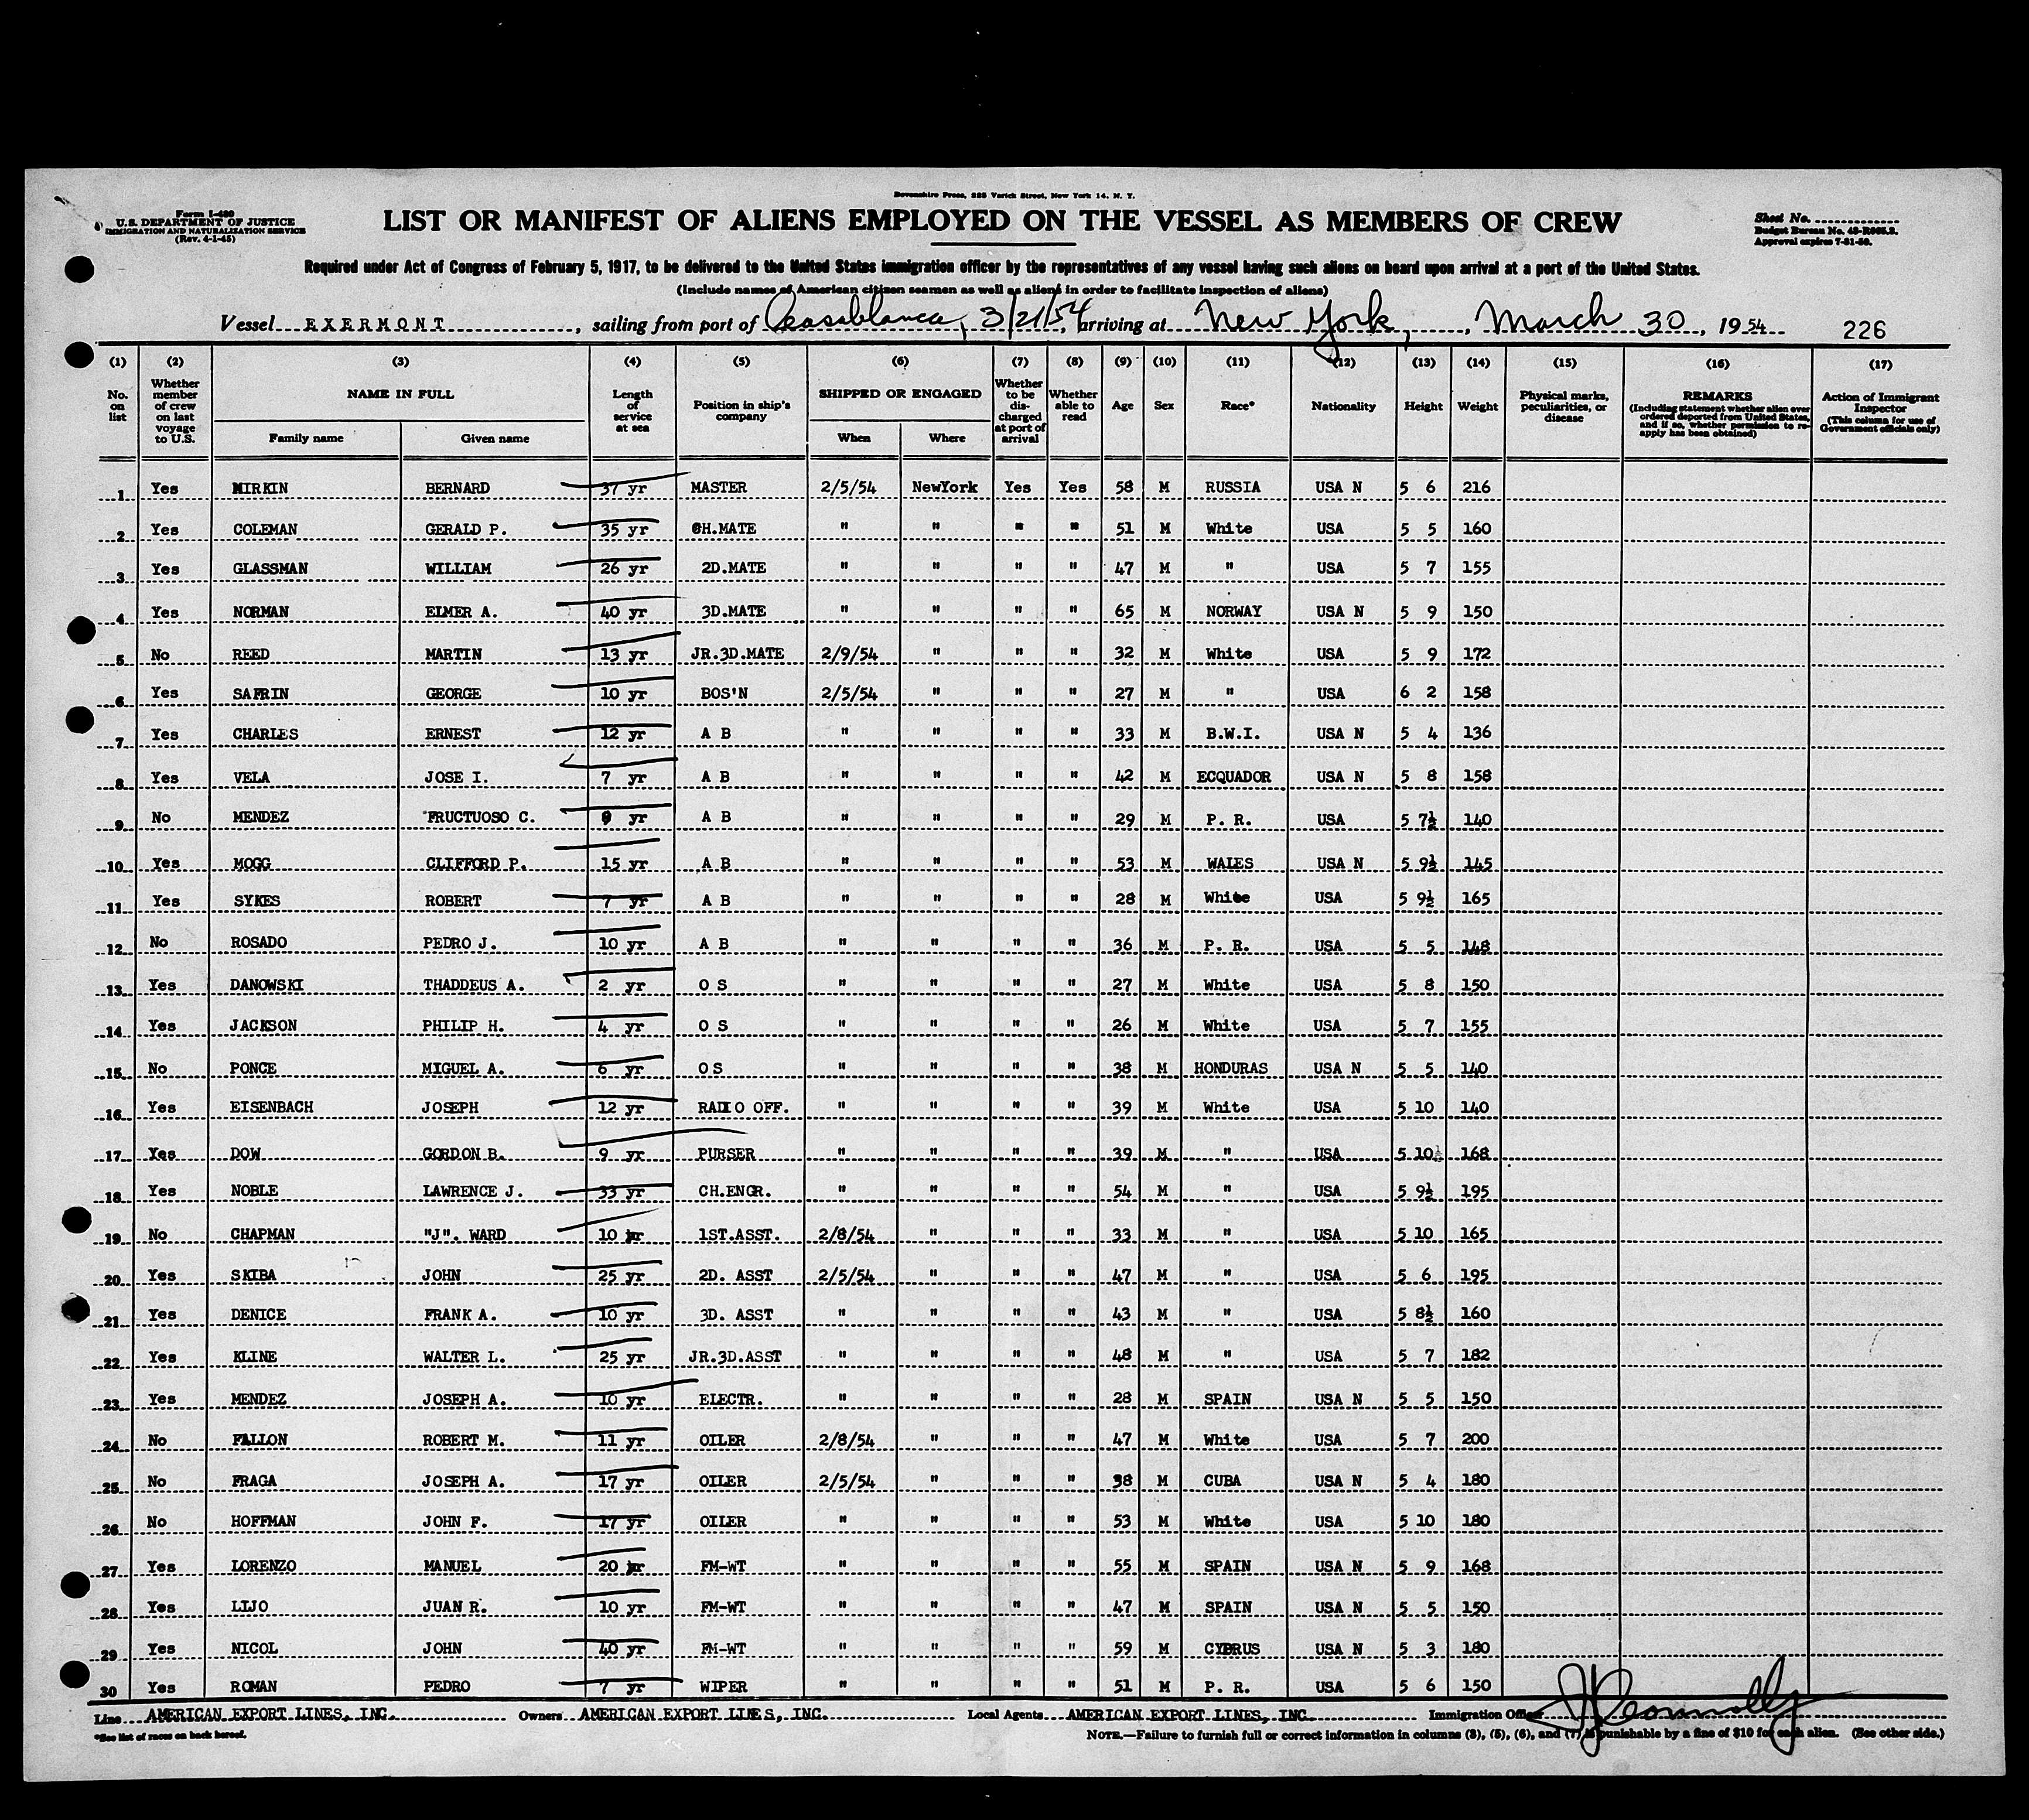 Devonshire Press, 225 Varick Street, New York 14, N. Y.
Form I-480
U.S. DEPARTMENT OF JUSTICE
IMMIGRATION AND NATURALIZATION SERVICE
(Rev. 4-1-45)
LIST OR MANIFEST OF ALIENS EMPLOYED ON THE VESSEL AS MEMBERS OF CREW
Sheet No.
Budget Bureau No. 43-R065.2.
Approval expires 7-31-50.
Required under Act of Congress of February 5, 1917, to be delivered to the United States immigration officer by the representatives of any vessel having such aliens on board upon arrival at a port of the United States.
(Include names of American citizen seamen as well as aliens in order to facilitate inspection of aliens)
Vessel EXERMONT, sailing from port of Casablanca, 3/21/54, arriving at New York, March 30, 19 54 226
(1) (2) (3) (4) (5) (6) (7) (8) (9) (10) (11) (12) (13) (14) (15) (16) (17)
No. on list
Whether member of crew on last voyage to U.S.
NAME IN FULL
Family name Given name
Length of service at sea
Position in ship's company
SHIPPED OR ENGAGED
When Where
Whether to be discharged at port of arrival
Whether able to read
Age
Sex
Race*
Nationality
Height
Weight
Physical marks, peculiarities, or disease
REMARKS
(Including statement whether alien ever ordered deported from United States, and if so, whether permission to reapply has been obtained)
Action of Immigrant Inspector
(This column for use of Government officials only)
1 Yes MIRKIN BERNARD 37 yr MASTER 2/5/54 NewYork Yes Yes 58 M RUSSIA USA N 5 6 216
2 Yes COLEMAN GERALD P. 35 yr CH.MATE " " " " 51 M White USA 5 5 160
3 Yes GLASSMAN WILLIAM 26 yr 2D.MATE " " " " 47 M " USA 5 7 155
4 Yes NORMAN ELMER A. 40 yr 3D.MATE " " " " 65 M NORWAY USA N 5 9 150
5 No REED MARTIN 13 yr JR.3D.MATE 2/9/54 " " " 32 M White USA 5 9 172
6 Yes SAFRIN GEORGE 10 yr BOS'N 2/5/54 " " " 27 M " USA 6 2 158
7 Yes CHARLES ERNEST 12 yr A B " " " " 33 M B.W.I. USA N 5 4 136
8 Yes VELA JOSE I. 7 yr A B " " " " 42 M ECQUADOR USA N 5 8 158
9 No MENDEZ FRUCTUOSO C. 9 yr A B " " " " 29 M P. R. USA 5 7½ 140
10 Yes MOGG CLIFFORD P. 15 yr A B " " " " 53 M WALES USA N 5 9½ 145
11 Yes SYKES ROBERT 7 yr A B " " " " 28 M White USA 5 9½ 165
12 No ROSADO PEDRO J. 10 yr A B " " " " 36 M P. R. USA 5 5 148
13 Yes DANOWSKI THADDEUS A. 2 yr O S " " " " 27 M White USA 5 8 150
14 Yes JACKSON PHILIP H. 4 yr O S " " " " 26 M White USA 5 7 155
15 No PONCE MIGUEL A. 6 yr O S " " " " 38 M HONDURAS USA N 5 5 140
16 Yes EISENBACH JOSEPH 12 yr RADIO OFF. " " " " 39 M White USA 5 10 140
17 Yes DOW GORDON B. 9 yr PURSER " " " " 39 M " USA 5 10½ 168
18 Yes NOBLE LAWRENCE J. 33 yr CH.ENGR. " " " " 54 M " USA 5 9½ 195
19 No CHAPMAN "J". WARD 10 yr 1ST.ASST. 2/8/54 " " " 33 M " USA 5 10 165
20 Yes SKIBA JOHN 25 yr 2D. ASST 2/5/54 " " " 47 M " USA 5 6 195
21 Yes DENICE FRANK A. 10 yr 3D. ASST " " " " 43 M " USA 5 8½ 160
22 Yes KLINE WALTER L. 25 yr JR.3D.ASST " " " " 48 M " USA 5 7 182
23 Yes MENDEZ JOSEPH A. 10 yr ELECTR. " " " " 28 M SPAIN USA N 5 5 150
24 No FALLON ROBERT M. 11 yr OILER 2/8/54 " " " 47 M White USA 5 7 200
25 No FRAGA JOSEPH A. 17 yr OILER 2/5/54 " " " 38 M CUBA USA N 5 4 180
26 No HOFFMAN JOHN F. 17 yr OILER " " " " 53 M White USA 5 10 180
27 Yes LORENZO MANUEL 20 yr FM-WT " " " " 55 M SPAIN USA N 5 9 168
28 Yes LIJO JUAN R. 10 yr FM-WT " " " " 47 M SPAIN USA N 5 5 150
29 Yes NICOL JOHN 40 yr FM-WT " " " " 59 M CYPRUS USA N 5 3 180
30 Yes ROMAN PEDRO 7 yr WIPER " " " " 51 M P. R. USA 5 6 150
Line AMERICAN EXPORT LINES, INC. Owners AMERICAN EXPORT LINES, INC. Local Agents AMERICAN EXPORT LINES, INC. Immigration Officer J Connolly
*See list of races on back hereof.
NOTE.—Failure to furnish full or correct information in columns (3), (5), (6), and (7) is punishable by a fine of $10 for each alien. (See other side.)